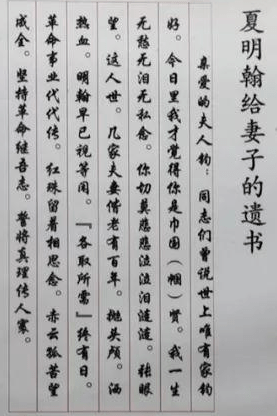 夏明翰给妻子的遗书
亲爱的夫人钧：同志们曾说世上唯有家钧
好。今日里我才觉得你是巾国（帼）贤。我一生
无愁无泪无私念。你切莫悲悲泣泣泪涟涟。张眼
望。这人世。几家夫妻偕老有百年。抛头颅。洒
热血。明翰早已视等闲。『各取所需』终有日。
革命事业代代传。红珠留着相思念。赤云孤苦望
成全。坚持革命继吾志。誓将真理传人寰。